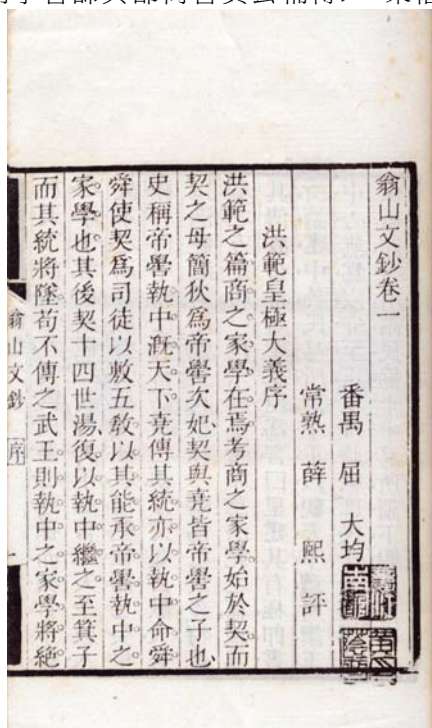 翁山文鈔卷一
番禺 屈 大均
常熟 薛 熙 評
洪範皇極大義序
洪範之篇商之家學在焉考商之家學始於契而
契之母簡狄爲帝嚳次妃契與堯皆帝嚳之子也
史稱帝嚳執中漑天下堯傳其統亦以執中命舜
舜使契爲司徒以敷五敎以其能承帝嚳執中之
家學也其後契十四世湯復以執中繼之至箕子
而其統將墜苟不傳之武王則執中之家學將絶
翁山文鈔 序 一